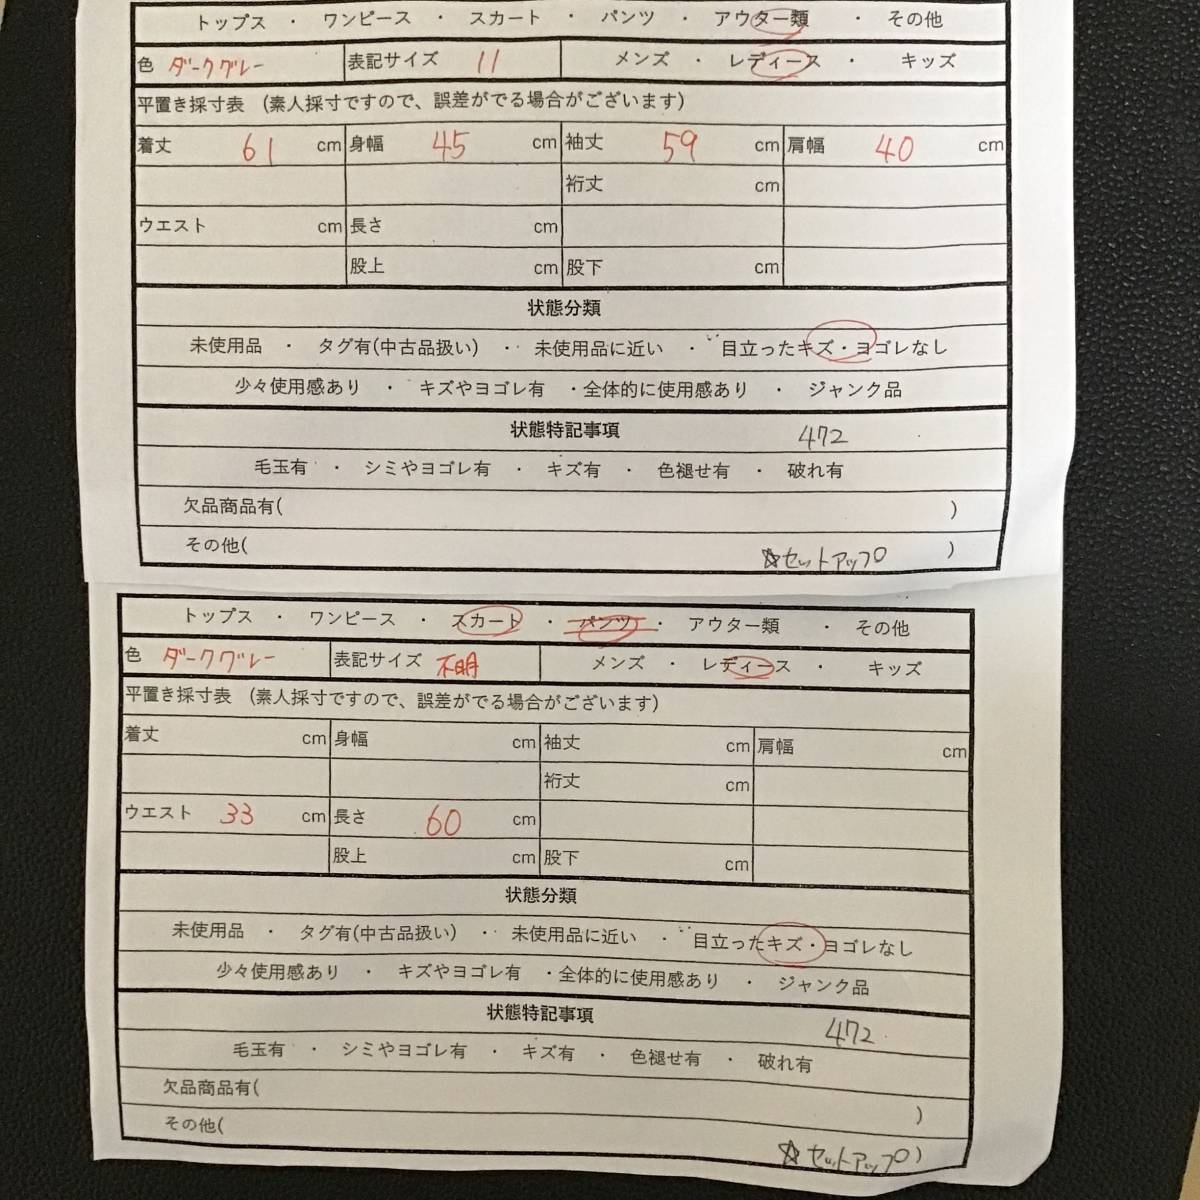 トップス ・ ワンピース ・ スカート ・ パンツ ・ アウター類 ・ その他
色 ダークグレー 表記サイズ 11 メンズ ・ レディース ・ キッズ
平置き採寸表 (素人採寸ですので、誤差がでる場合がございます)
着丈 61 cm 身幅 45 cm 袖丈 59 cm 肩幅 40 cm
裄丈 cm
ウエスト cm 長さ cm
股上 cm 股下 cm
状態分類
未使用品 ・ タグ有(中古品扱い) ・・ 未使用品に近い ・ 目立ったキズ・ヨゴレなし
少々使用感あり ・ キズやヨゴレ有 ・全体的に使用感あり ・ ジャンク品
状態特記事項 472
毛玉有 ・ シミやヨゴレ有 ・ キズ有 ・ 色褪せ有 ・ 破れ有
欠品商品有( )
その他( ☆セットアップ )
トップス ・ ワンピース ・ スカート ・ パンツ ・ アウター類 ・ その他
色 ダークグレー 表記サイズ 不明 メンズ ・ レディース ・ キッズ
平置き採寸表 (素人採寸ですので、誤差がでる場合がございます)
着丈 cm 身幅 cm 袖丈 cm 肩幅 cm
裄丈 cm
ウエスト 33 cm 長さ 60 cm
股上 cm 股下 cm
状態分類
未使用品 ・ タグ有(中古品扱い) ・・ 未使用品に近い ・ 目立ったキズ・ヨゴレなし
少々使用感あり ・ キズやヨゴレ有 ・全体的に使用感あり ・ ジャンク品
状態特記事項 472
毛玉有 ・ シミやヨゴレ有 ・ キズ有 ・ 色褪せ有 ・ 破れ有
欠品商品有( )
その他( ☆セットアップ )